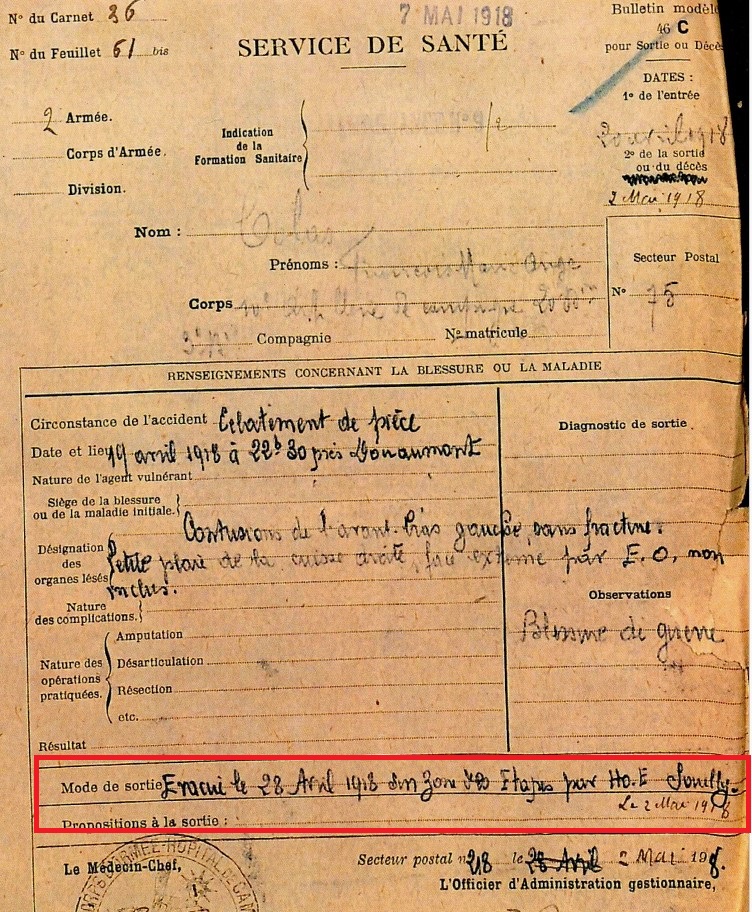 Nº du Carnet 26
7 MAI 1918
Bulletin modèle
46 C
Nº du Feuillet 61 bis
SERVICE DE SANTÉ
pour Sortie ou Décès
DATES :
1º de l'entrée
2 Armée.
Corps d'Armée.
Division.
Indication
de la
Formation Sanitaire
avril 1918
2º de la sortie
ou du décès
2 Mai 1918
Nom : Colas
Prénoms : François Marie Ange
Secteur Postal
Nº 75
Corps 10e de campagne
Compagnie Nº matricule
RENSEIGNEMENTS CONCERNANT LA BLESSURE OU LA MALADIE
Circonstance de l'accident Eclatement de pièce
Diagnostic de sortie
Date et lieu 19 avril 1918 à 22h30 près Douaumont
Nature de l'agent vulnérant
Siège de la blessure
ou de la maladie initiale.
Contusions de l'avant-bras gauche, sans fracture.
Désignation
des
organes lésés
Petite plaie de la cuisse droite, face externe par E.O, non
inclus.
Nature
des complications.
Observations
Blessure de guerre
Nature des
opérations
pratiquées.
Amputation
Désarticulation
Résection
etc.
Résultat
Mode de sortie Evacué le 28 Avril 1918 Zone des Etapes par Ho.E Souilly.
Le 2 Mai 1918
Propositions à la sortie :
Le Médecin-Chef,
Secteur postal nº 218 le 28 Avril 2 Mai 1918.
L'Officier d'Administration gestionnaire,